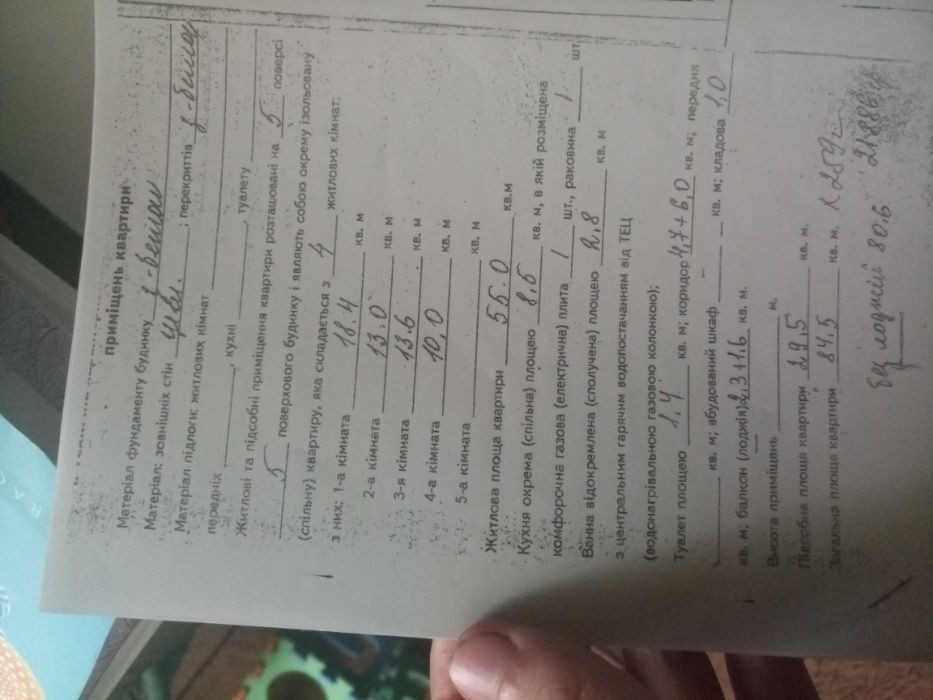 приміщень квартири
Матеріал фундаменту будинку з-бетон
Матеріал: зовнішніх стін цегл. ; перекриття з-бетон
Матеріал підлоги: житлових кімнат
передніх , кухні , туалету
Житлові та підсобні приміщення квартири розташовані на 5 поверсі
5 поверхового будинку і являють собою окрему ізольовану
(спільну) квартиру, яка складається з 4 житлових кімнат:
з них: 1-а кімната 18.4 кв. м
2-а кімната 13,0 кв. м
3-я кімната 13.6 кв. м
4-а кімната 10,0 кв. м
5-а кімната кв. м
Житлова площа квартири 55.0 кв.м
Кухня окрема (спільна) площею 8.6 кв. м, в якій розміщена
комфорочна газова (електрична) плита 1 шт., раковина 1 шт
Ванна відокремлена (сполучена) площею 2,8 кв. м
з центральним гарячим водопостачанням від ТЕЦ
(водонагрівальною газовою колонкою);
Туалет площею 1,4 кв. м; коридор 4,7+6,0 кв. м; передня
кв. м; вбудований шкаф кв. м; кладова 1,0
кв. м; балкон (лоджія) 2,3+1,6 кв. м.
Висота приміщень м.
Підсобна площа квартири 29,5 кв. м.
Загальна площа квартири 84,5 кв. м.
без лоджій 80.6